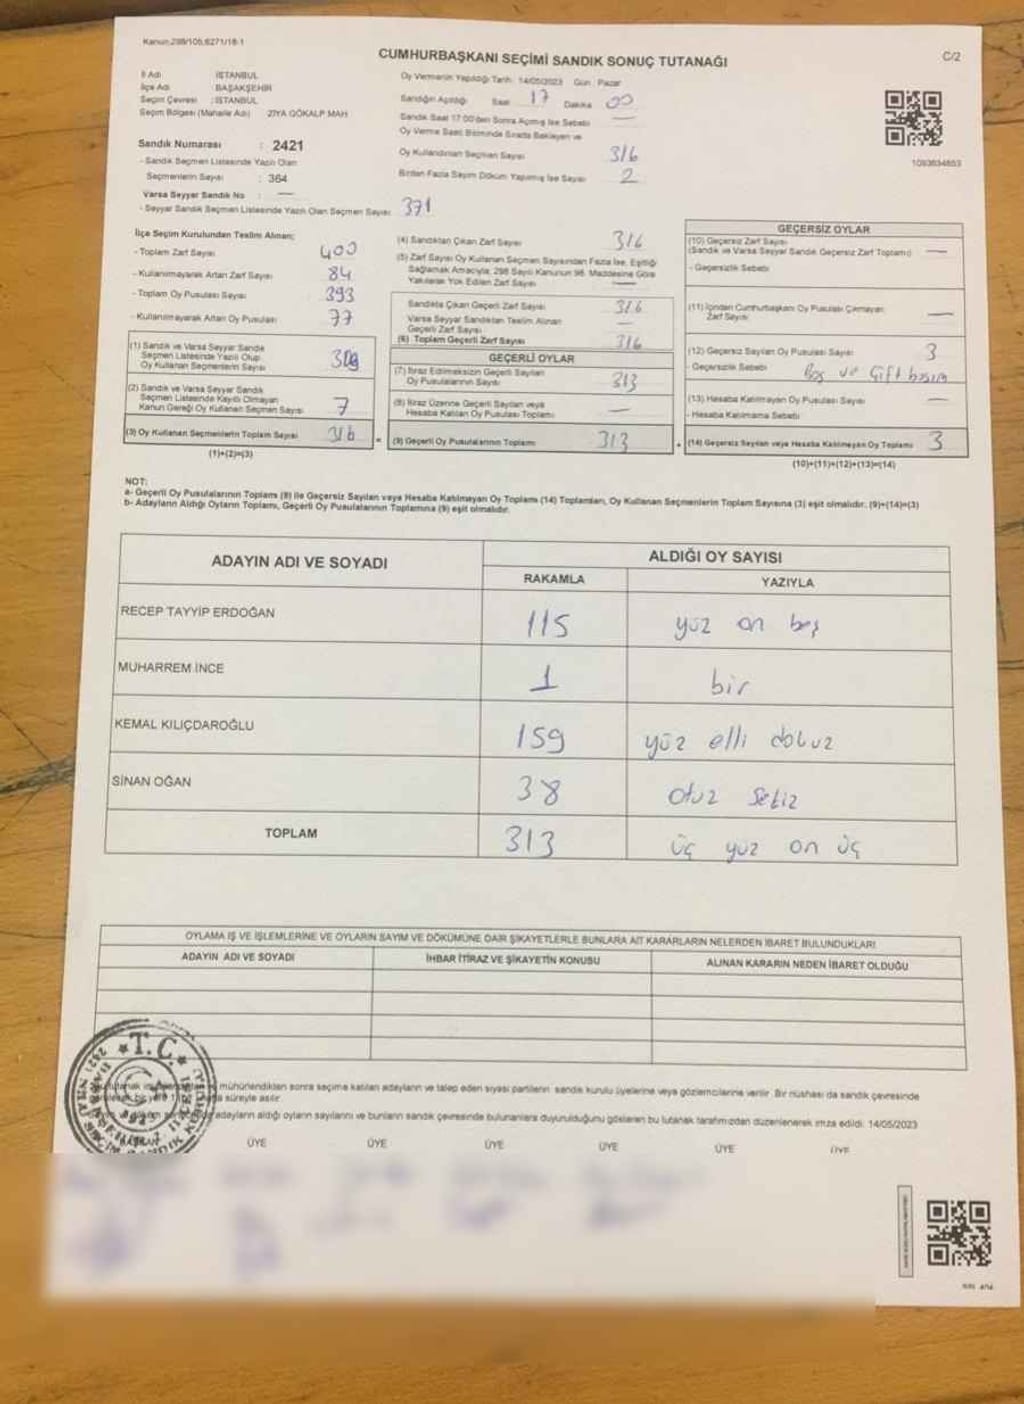 Kanun:298/105,6271/18-1
CUMHURBAŞKANI SEÇİMİ SANDIK SONUÇ TUTANAĞI
C/2
İl Adı : İSTANBUL
İlçe Adı : BAŞAKŞEHİR
Seçim Çevresi : İSTANBUL
Seçim Bölgesi (Mahalle Adı) : ZİYA GÖKALP MAH
Sandık Numarası : 2421
- Sandık Seçmen Listesinde Yazılı Olan
Seçmenlerin Sayısı : 364
Varsa Seyyar Sandık No : —
- Seyyar Sandık Seçmen Listesinde Yazılı Olan Seçmen Sayısı 371
Oy Vermenin Yapıldığı Tarih: 14/05/2023 Gün : Pazar
Sandığın Açıldığı Saat 17 Dakika 00
Sandık Saat 17:00'den Sonra Açılmış İse Sebebi —
Oy Verme Saati Bitiminde Sırada Bekleyen ve
Oy Kullandırılan Seçmen Sayısı 316
Birden Fazla Sayım Döküm Yapılmış İse Sayısı 2
1093634853
İlçe Seçim Kurulundan Teslim Alınan;
- Toplam Zarf Sayısı 400
- Kullanılmayarak Artan Zarf Sayısı 84
- Toplam Oy Pusulası Sayısı 393
- Kullanılmayarak Artan Oy Pusulası 77
(1) Sandık ve Varsa Seyyar Sandık
Seçmen Listesinde Yazılı Olup
Oy Kullanan Seçmenlerin Sayısı 309
(2) Sandık ve Varsa Seyyar Sandık
Seçmen Listesinde Kayıtlı Olmayan
Kanun Gereği Oy Kullanan Seçmen Sayısı 7
(3) Oy Kullanan Seçmenlerin Toplam Sayısı 316
(1)+(2)=(3)
(4) Sandıktan Çıkan Zarf Sayısı 316
(5) Zarf Sayısı Oy Kullanan Seçmen Sayısından Fazla İse, Eşitliği
Sağlamak Amacıyla; 298 Sayılı Kanunun 98. Maddesine Göre
Yakılarak Yok Edilen Zarf Sayısı —
Sandıkta Çıkan Geçerli Zarf Sayısı 316
Varsa Seyyar Sandıktan Teslim Alınan
Geçerli Zarf Sayısı —
(6) Toplam Geçerli Zarf Sayısı 316
GEÇERLİ OYLAR
(7) İtiraz Edilmeksizin Geçerli Sayılan
Oy Pusulalarının Sayısı 313
(8) İtiraz Üzerine Geçerli Sayılan veya
Hesaba Katılan Oy Pusulası Toplamı —
= (9) Geçerli Oy Pusulalarının Toplamı 313
GEÇERSİZ OYLAR
(10) Geçersiz Zarf Sayısı
(Sandık ve Varsa Seyyar Sandık Geçersiz Zarf Toplamı) —
- Geçersizlik Sebebi
(11) İçinden Cumhurbaşkanı Oy Pusulası Çıkmayan
Zarf Sayısı —
(12) Geçersiz Sayılan Oy Pusulası Sayısı 3
- Geçersizlik Sebebi Boş ve Çift basım
(13) Hesaba Katılmayan Oy Pusulası Sayısı —
- Hesaba Katılmama Sebebi
+ (14) Geçersiz Sayılan veya Hesaba Katılmayan Oy Toplamı 3
(10)+(11)+(12)+(13)=(14)
NOT:
a- Geçerli Oy Pusulalarının Toplamı (9) ile Geçersiz Sayılan veya Hesaba Katılmayan Oy Toplamı (14) Toplamları, Oy Kullanan Seçmenlerin Toplam Sayısına (3) eşit olmalıdır. (9)+(14)=(3)
b- Adayların Aldığı Oyların Toplamı, Geçerli Oy Pusulalarının Toplamına (9) eşit olmalıdır.
ADAYIN ADI VE SOYADI
ALDIĞI OY SAYISI
RAKAMLA YAZIYLA
RECEP TAYYİP ERDOĞAN 115 yüz on beş
MUHARREM İNCE 1 bir
KEMAL KILIÇDAROĞLU 159 yüz elli dokuz
SİNAN OĞAN 38 otuz sekiz
TOPLAM 313 üç yüz on üç
OYLAMA İŞ VE İŞLEMLERİNE VE OYLARIN SAYIM VE DÖKÜMÜNE DAİR ŞİKAYETLERLE BUNLARA AİT KARARLARIN NELERDEN İBARET BULUNDUKLARI
ADAYIN ADI VE SOYADI İHBAR İTİRAZ VE ŞİKAYETİN KONUSU ALINAN KARARIN NEDEN İBARET OLDUĞU
T.C.
mühürlendikten sonra seçime katılan adayların ve talep eden siyasi partilerin sandık kurulu üyelerine veya gözlemcilerine verilir. Bir nüshası da sandık çevresinde
süreyle asılır.
adayların aldığı oyların sayılarını ve bunların sandık çevresinde bulunanlara duyurulduğunu gösteren bu tutanak tarafımızdan düzenlenerek imza edildi. 14/05/2023
ÜYE ÜYE ÜYE ÜYE ÜYE ÜYE